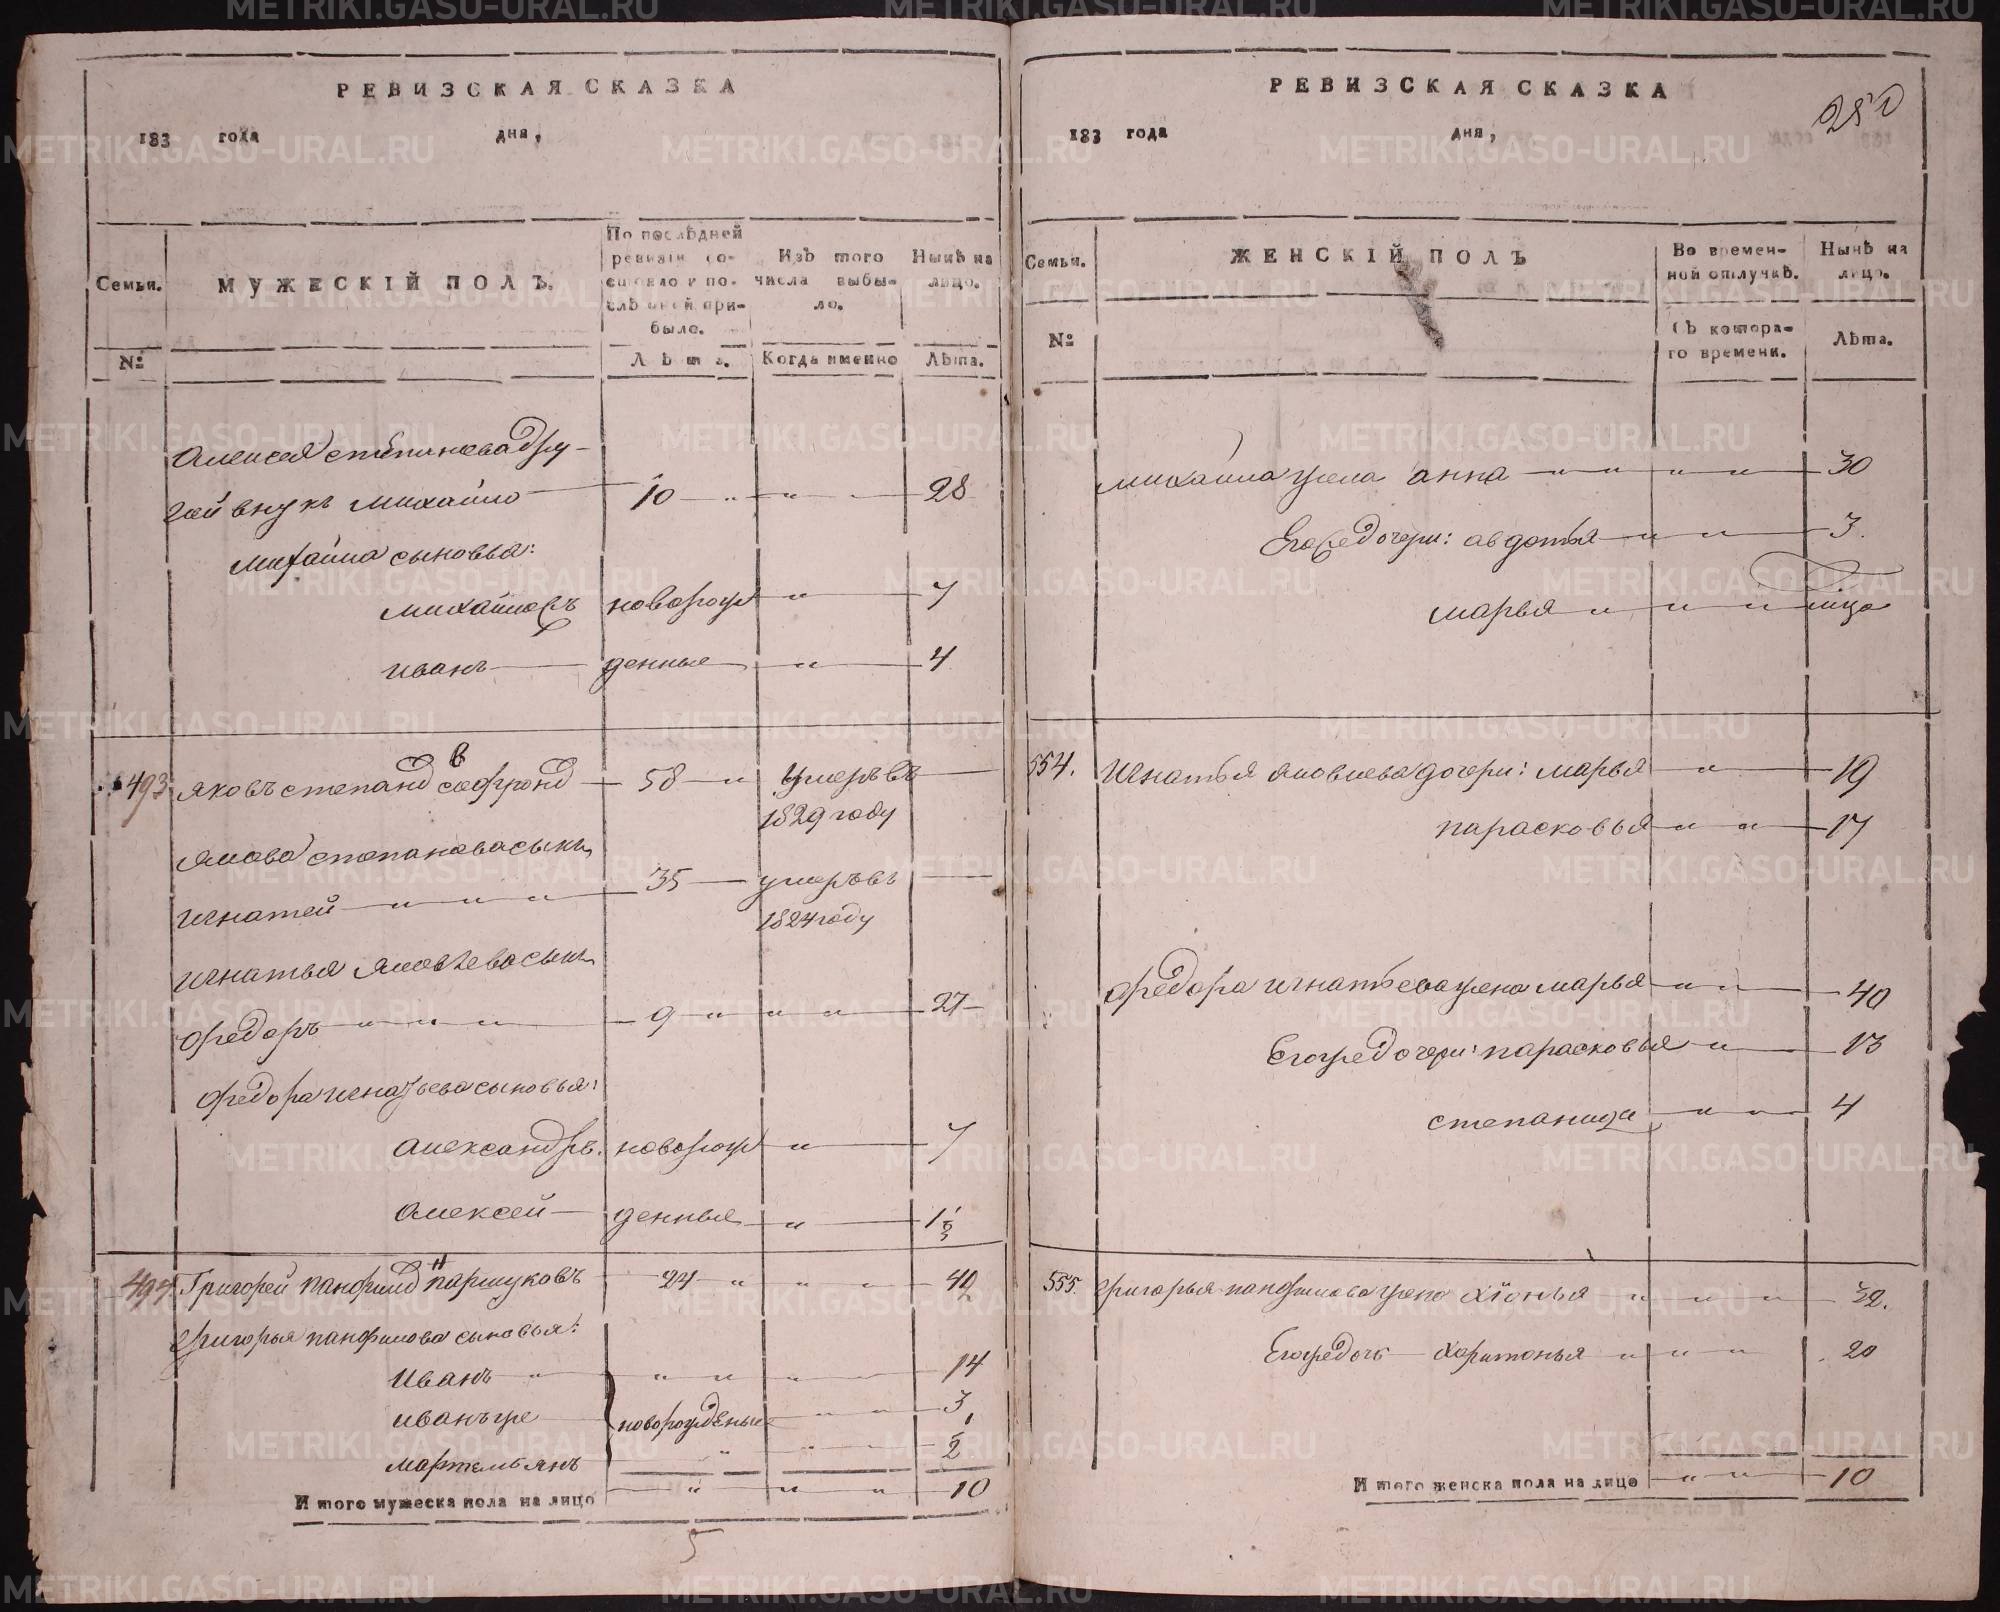 РЕВИЗСКАЯ СКАЗКА
183 года дня,
Семьи.
МУЖЕСКІЙ ПОЛЪ.
По послѣдней ревизіи состояло и послѣ оной прибыло.
Изъ того числа выбыло.
Нынѣ на лицо.
№
Лѣта.
Когда именно
Лѣта.
Алексея степанова дру-
гой внукъ Михайло 10 " " 28
Михайла сыновья:
Михайло новорож " 7
Иванъ денные " 4
493 Яковъ степано в софроно 58 " умеръ въ
1829 году
Якова степанова сынъ
Игнатей " " " 35 умеръ въ
1824 году
Игнатья Яковлева сынъ
Федоръ " " " 9 " " " 27
Федора игнатьева сыновья:
Александръ. новорож " 7
Алексей денные " 1
494 Григорей панфило Н паршуковъ 24 " " " 42
Григорья панфилова сыновья:
Иванъ " " " " 14
иванъ же новорожденые " " 3
Мартемьянъ " " " 1/2
И того мужеска пола на лицо " " " 10
5
РЕВИЗСКАЯ СКАЗКА
183 года дня,
Семьи.
ЖЕНСКІЙ ПОЛЪ
Во временной отлучкѣ.
Нынѣ на лицо.
№
Съ котораго времени.
Лѣта.
Михайла жена анна " " " " 30
Его же дочери: авдотья " " 3.
марья " " "
554. Игнатья яковлева дочери: марья " 19
парасковья " " 17
Федора игнатьева жена марья " " 40
Его же дочери: парасковья " 13
степанида " " 4
555. Григорья панфилова жена хіонья " " "
Его же дочь харитонья " " " 20
И того женска пола на лицо " " 10
METRIKI.GASO-URAL.RU